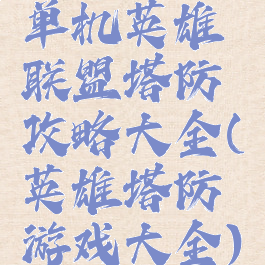 单机英雄
联盟塔防
攻略大全(
英雄塔防
游戏大全)